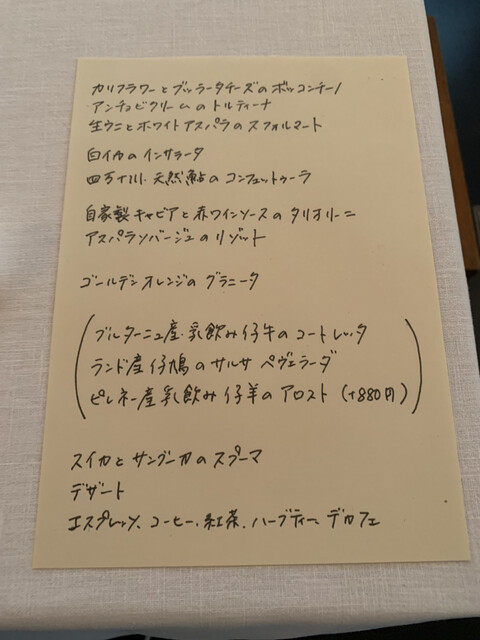 カリフラワーとブッラータチーズのボッコンチーノ
アンチョビクリームのトルティーナ
生ウニとホワイトアスパラのスフォルマート
白イカのインサラータ
四万十川.天然鮎のコンフェットゥーラ
自家製キャビアと赤ワインソースのタリオリーニ
アスパラソバージュのリゾット
ゴールデンオレンジのグラニータ
ブルターニュ産.乳飲み仔牛のコートレッタ
ランド産仔鳩のサルサ ペヴェラーダ
ピレネー産乳飲み仔羊のアロスト (+880円)
スイカとサングリアのスプーマ
デザート
エスプレッソ、コーヒー、紅茶、ハーブティー、デカフェ